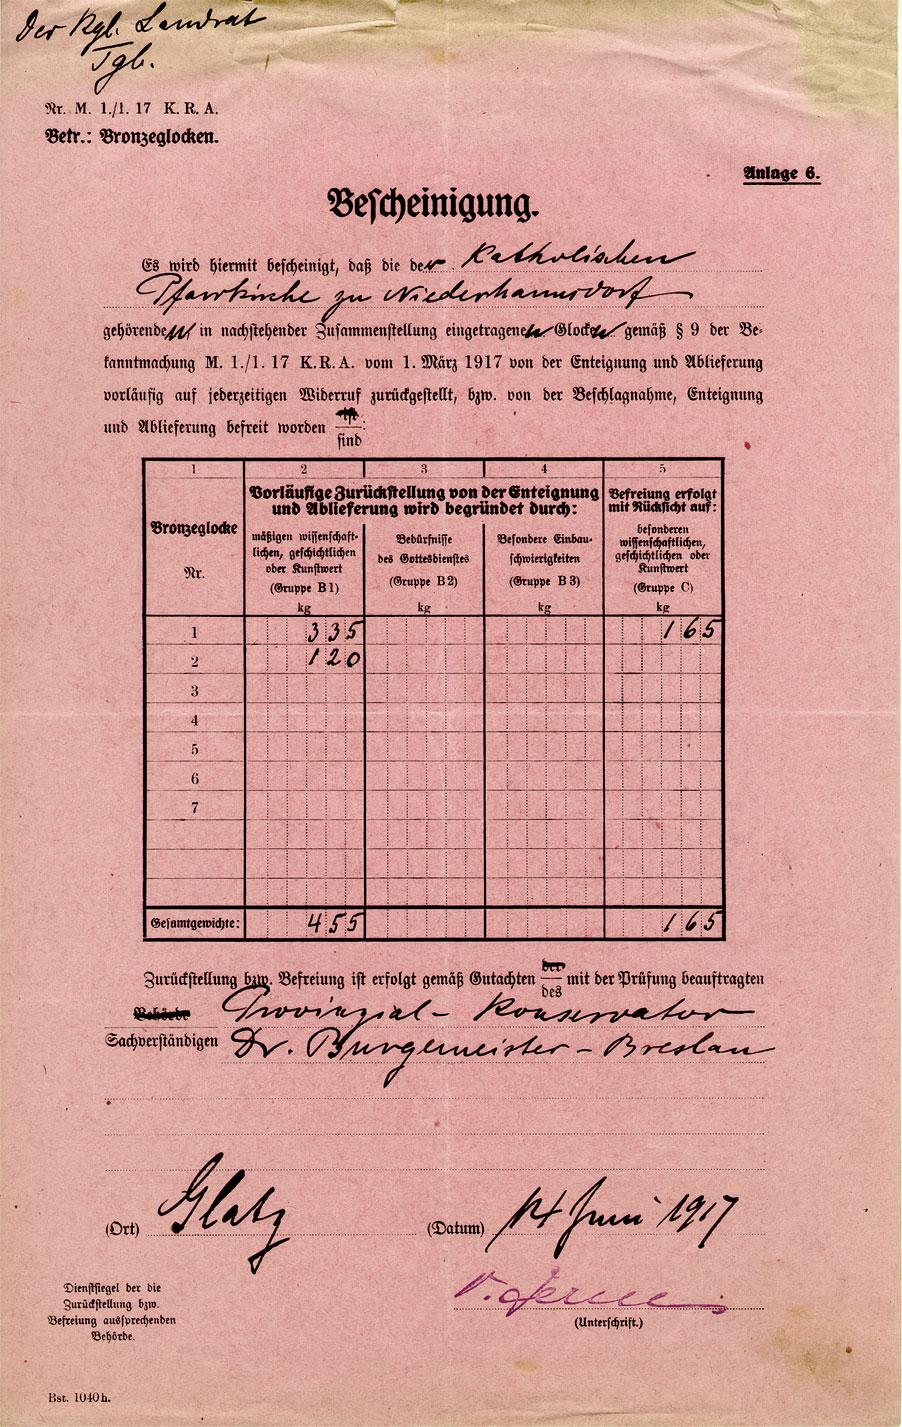 Der Kgl. Landrat
Tgb.
Nr. M. 1./1. 17 K. R. A.
Betr.: Bronzeglocken.
Anlage 6.
Bescheinigung.
Es wird hiermit bescheinigt, daß die der Katholischen
Pfarrkirche zu Niederhannsdorf
gehörenden in nachstehender Zusammenstellung eingetragenen Glocken gemäß § 9 der Be-
kanntmachung M. 1./1. 17 K.R.A. vom 1. März 1917 von der Enteignung und Ablieferung
vorläufig auf jederzeitigen Widerruf zurückgestellt, bzw. von der Beschlagnahme, Enteignung
und Ablieferung befreit worden ist/sind:
1 2 3 4 5
Bronzeglocke
Nr.
Vorläufige Zurückstellung von der Enteignung
und Ablieferung wird begründet durch:
mäßigen wissenschaft-
lichen, geschichtlichen
oder Kunstwert
(Gruppe B1)
kg
Bedürfnisse
des Gottesdienstes
(Gruppe B2)
kg
Besondere Einbau-
schwierigkeiten
(Gruppe B3)
kg
Befreiung erfolgt
mit Rücksicht auf:
besonderen
wissenschaftlichen,
geschichtlichen oder
Kunstwert
(Gruppe C)
kg
1 335 165
2 120
3
4
5
6
7
Gesamtgewichte: 455 165
Zurückstellung bzw. Befreiung ist erfolgt gemäß Gutachten der/des mit der Prüfung beauftragten
Behörde Provinzial-Konservator
Sachverständigen Dr. Burgemeister - Breslau
(Ort) Glatz (Datum) 14 Juni 1917
(Unterschrift.)
Dienstsiegel der die
Zurückstellung bzw.
Befreiung aussprechenden
Behörde.
Bst. 1040h.